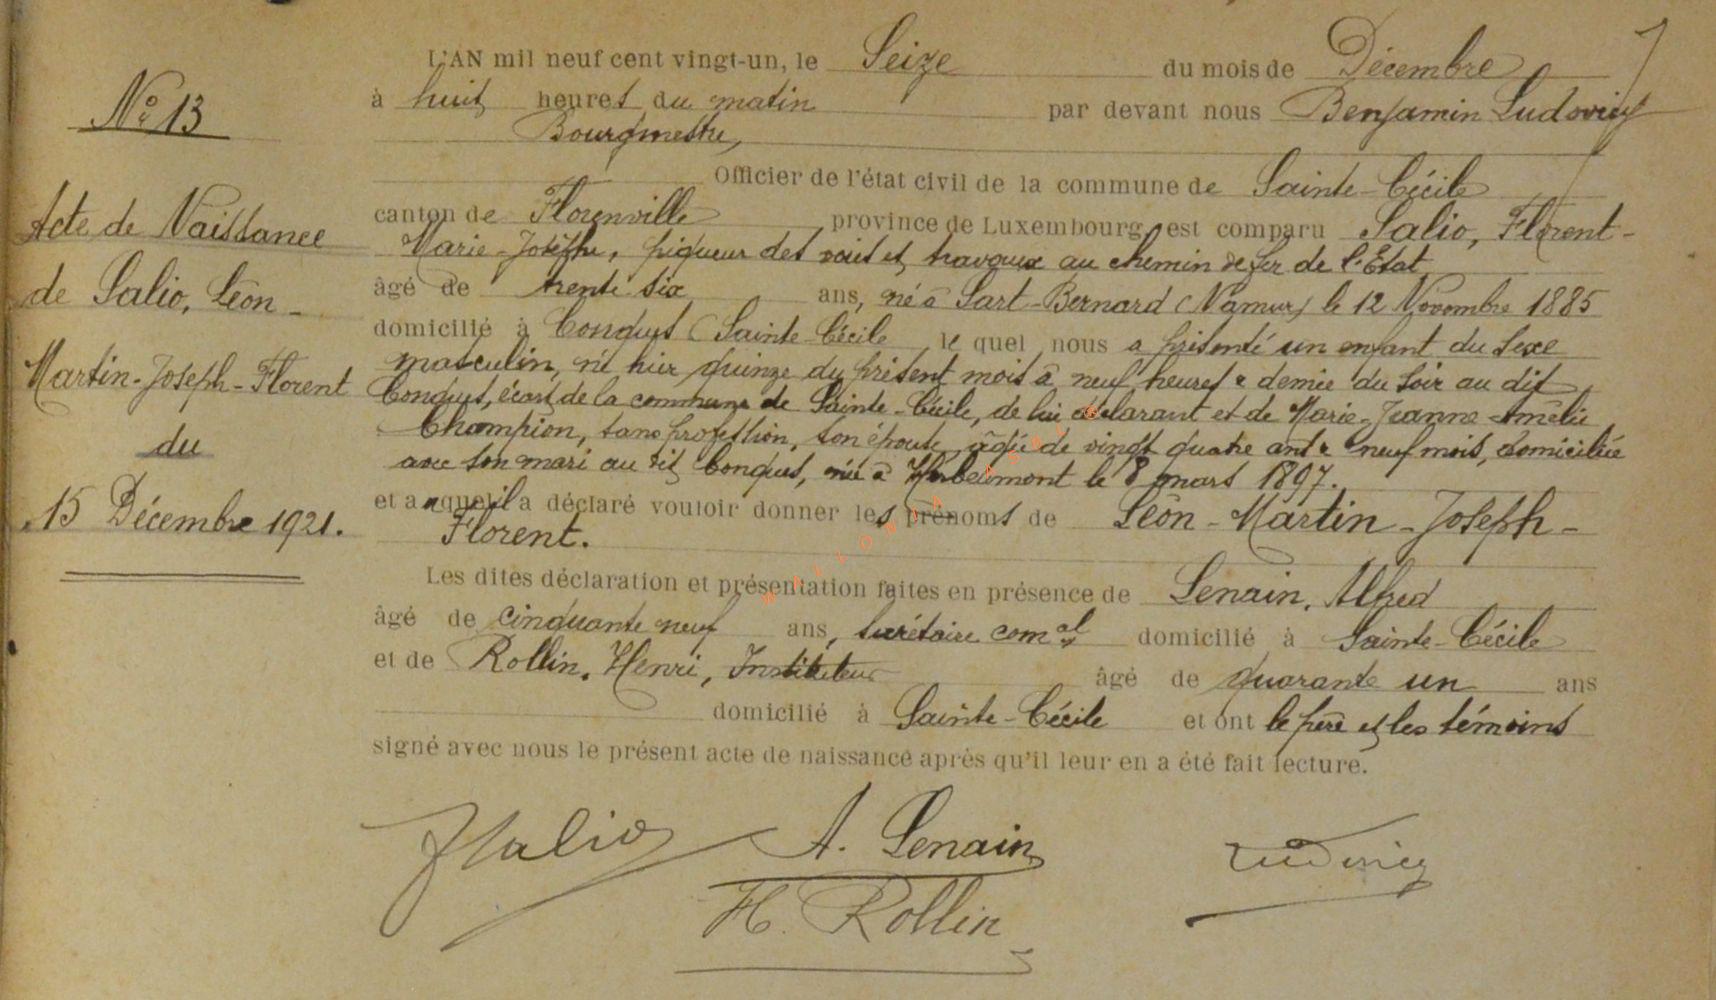 N° 13
Acte de Naissance
de Salio, Léon-
Martin-Joseph-Florent
du
15 Décembre 1921.
L'AN mil neuf cent vingt-un, le Seize du mois de Décembre
à huit heures du matin par devant nous Benjamin Ludovicy
Bourgmestre,
Officier de l'état civil de la commune de Sainte-Cécile
canton de Florenville province de Luxembourg, est comparu Salio, Florent-
Marie-Josèphe, piqueur des voies et travaux au chemin de fer de l'Etat
âgé de trente six ans, né à Sart-Bernard (Namur) le 12 Novembre 1885
domicilié à Conques (Sainte-Cécile le quel nous a présenté un enfant du sexe
masculin, né hier quinze du présent mois à neuf heures & demie du soir au dit
Conques, écart de la commune de Sainte-Cécile, de lui déclarant et de Marie-Jeanne-Amélie
Champion, sans profession, son épouse, âgée de vingt quatre ans & neuf mois, domiciliée
avec son mari au dit Conques, née à Herbeumont le 8 mars 1897.
et a quel il a déclaré vouloir donner les prénoms de Léon-Martin-Joseph-
Florent.
Les dites déclaration et présentation faites en présence de Lenain, Alfred
âgé de cinquante neuf ans, secrétaire comal domicilié à Sainte-Cécile
et de Rollin, Henri, Instituteur âgé de quarante un ans
domicilié à Sainte-Cécile et ont le père et les témoins
signé avec nous le présent acte de naissance après qu'il leur en a été fait lecture.
FSalio A. Lenain Ludovicy
H. Rollin